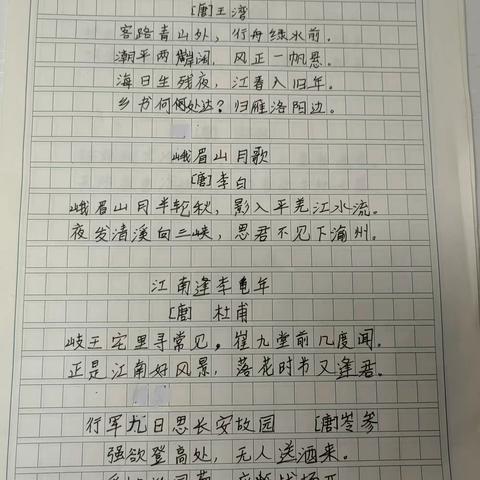 [唐]王湾
客路青山外，行舟绿水前。
潮平两岸阔，风正一帆悬。
海日生残夜，江春入旧年。
乡书何处达？归雁洛阳边。
峨眉山月歌
[唐]李白
峨眉山月半轮秋，影入平羌江水流。
夜发清溪向三峡，思君不见下渝州。
江南逢李龟年
[唐] 杜甫
岐王宅里寻常见，崔九堂前几度闻。
正是江南好风景，落花时节又逢君。
行军九日思长安故园 [唐]岑参
强欲登高处，无人送酒来。